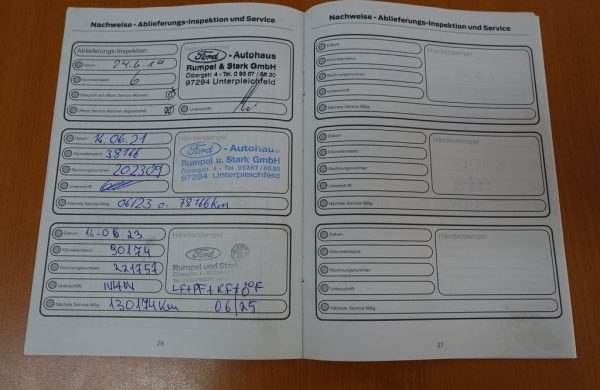 Nachweise - Ablieferungs-Inspektion und Service
Ablieferungs-Inspektion
Datum 24.6.19
Kilometerstand 6
Überprüft auf offene Service Aktionen
Offene Service Aktionen abgearbeitet
Unterschrift
Ford - Autohaus
Rumpel & Stark GmbH
Ölbergstr. 4 - Tel. 0 93 67 / 66 30
97294 Unterpleichfeld
Datum 14.06.21
Kilometerstand 38166
Rechnungsnummer 202309
Unterschrift
Nächste Service fällig 06/23 o. 78166 Km
Händlerstempel
Ford - Autohaus
Rumpel u. Stark GmbH
Ölbergstr. 4 - Tel. 09367/6630
97294 Unterpleichfeld
Datum 14.06.23
Kilometerstand 90174
Rechnungsnummer 221757
Unterschrift
Nächste Service fällig 130174 Km 06/25
Händlerstempel
Ford MG
Rumpel und Stark
LF+PF+KF+ÖF
26
Nachweise - Ablieferungs-Inspektion und Service
Datum
Kilometerstand
Rechnungsnummer
Unterschrift
Nächste Service fällig
Händlerstempel
Datum
Kilometerstand
Rechnungsnummer
Unterschrift
Nächste Service fällig
Händlerstempel
Datum
Kilometerstand
Rechnungsnummer
Unterschrift
Nächste Service fällig
Händlerstempel
27